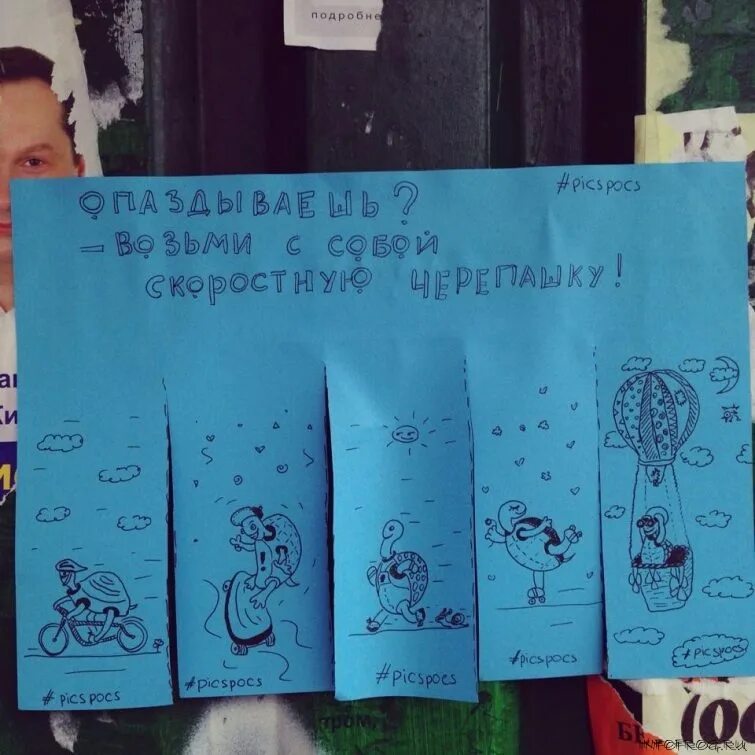 подробнее
#picspocs
ОПАЗДЫВАЕШЬ?
– ВОЗЬМИ С СОБОЙ
СКОРОСТНУЮ ЧЕРЕПАШКУ!
#picspocs
#picspocs
#picspocs
#picspocs
#picspocs
пром,
INFOFROG.RU